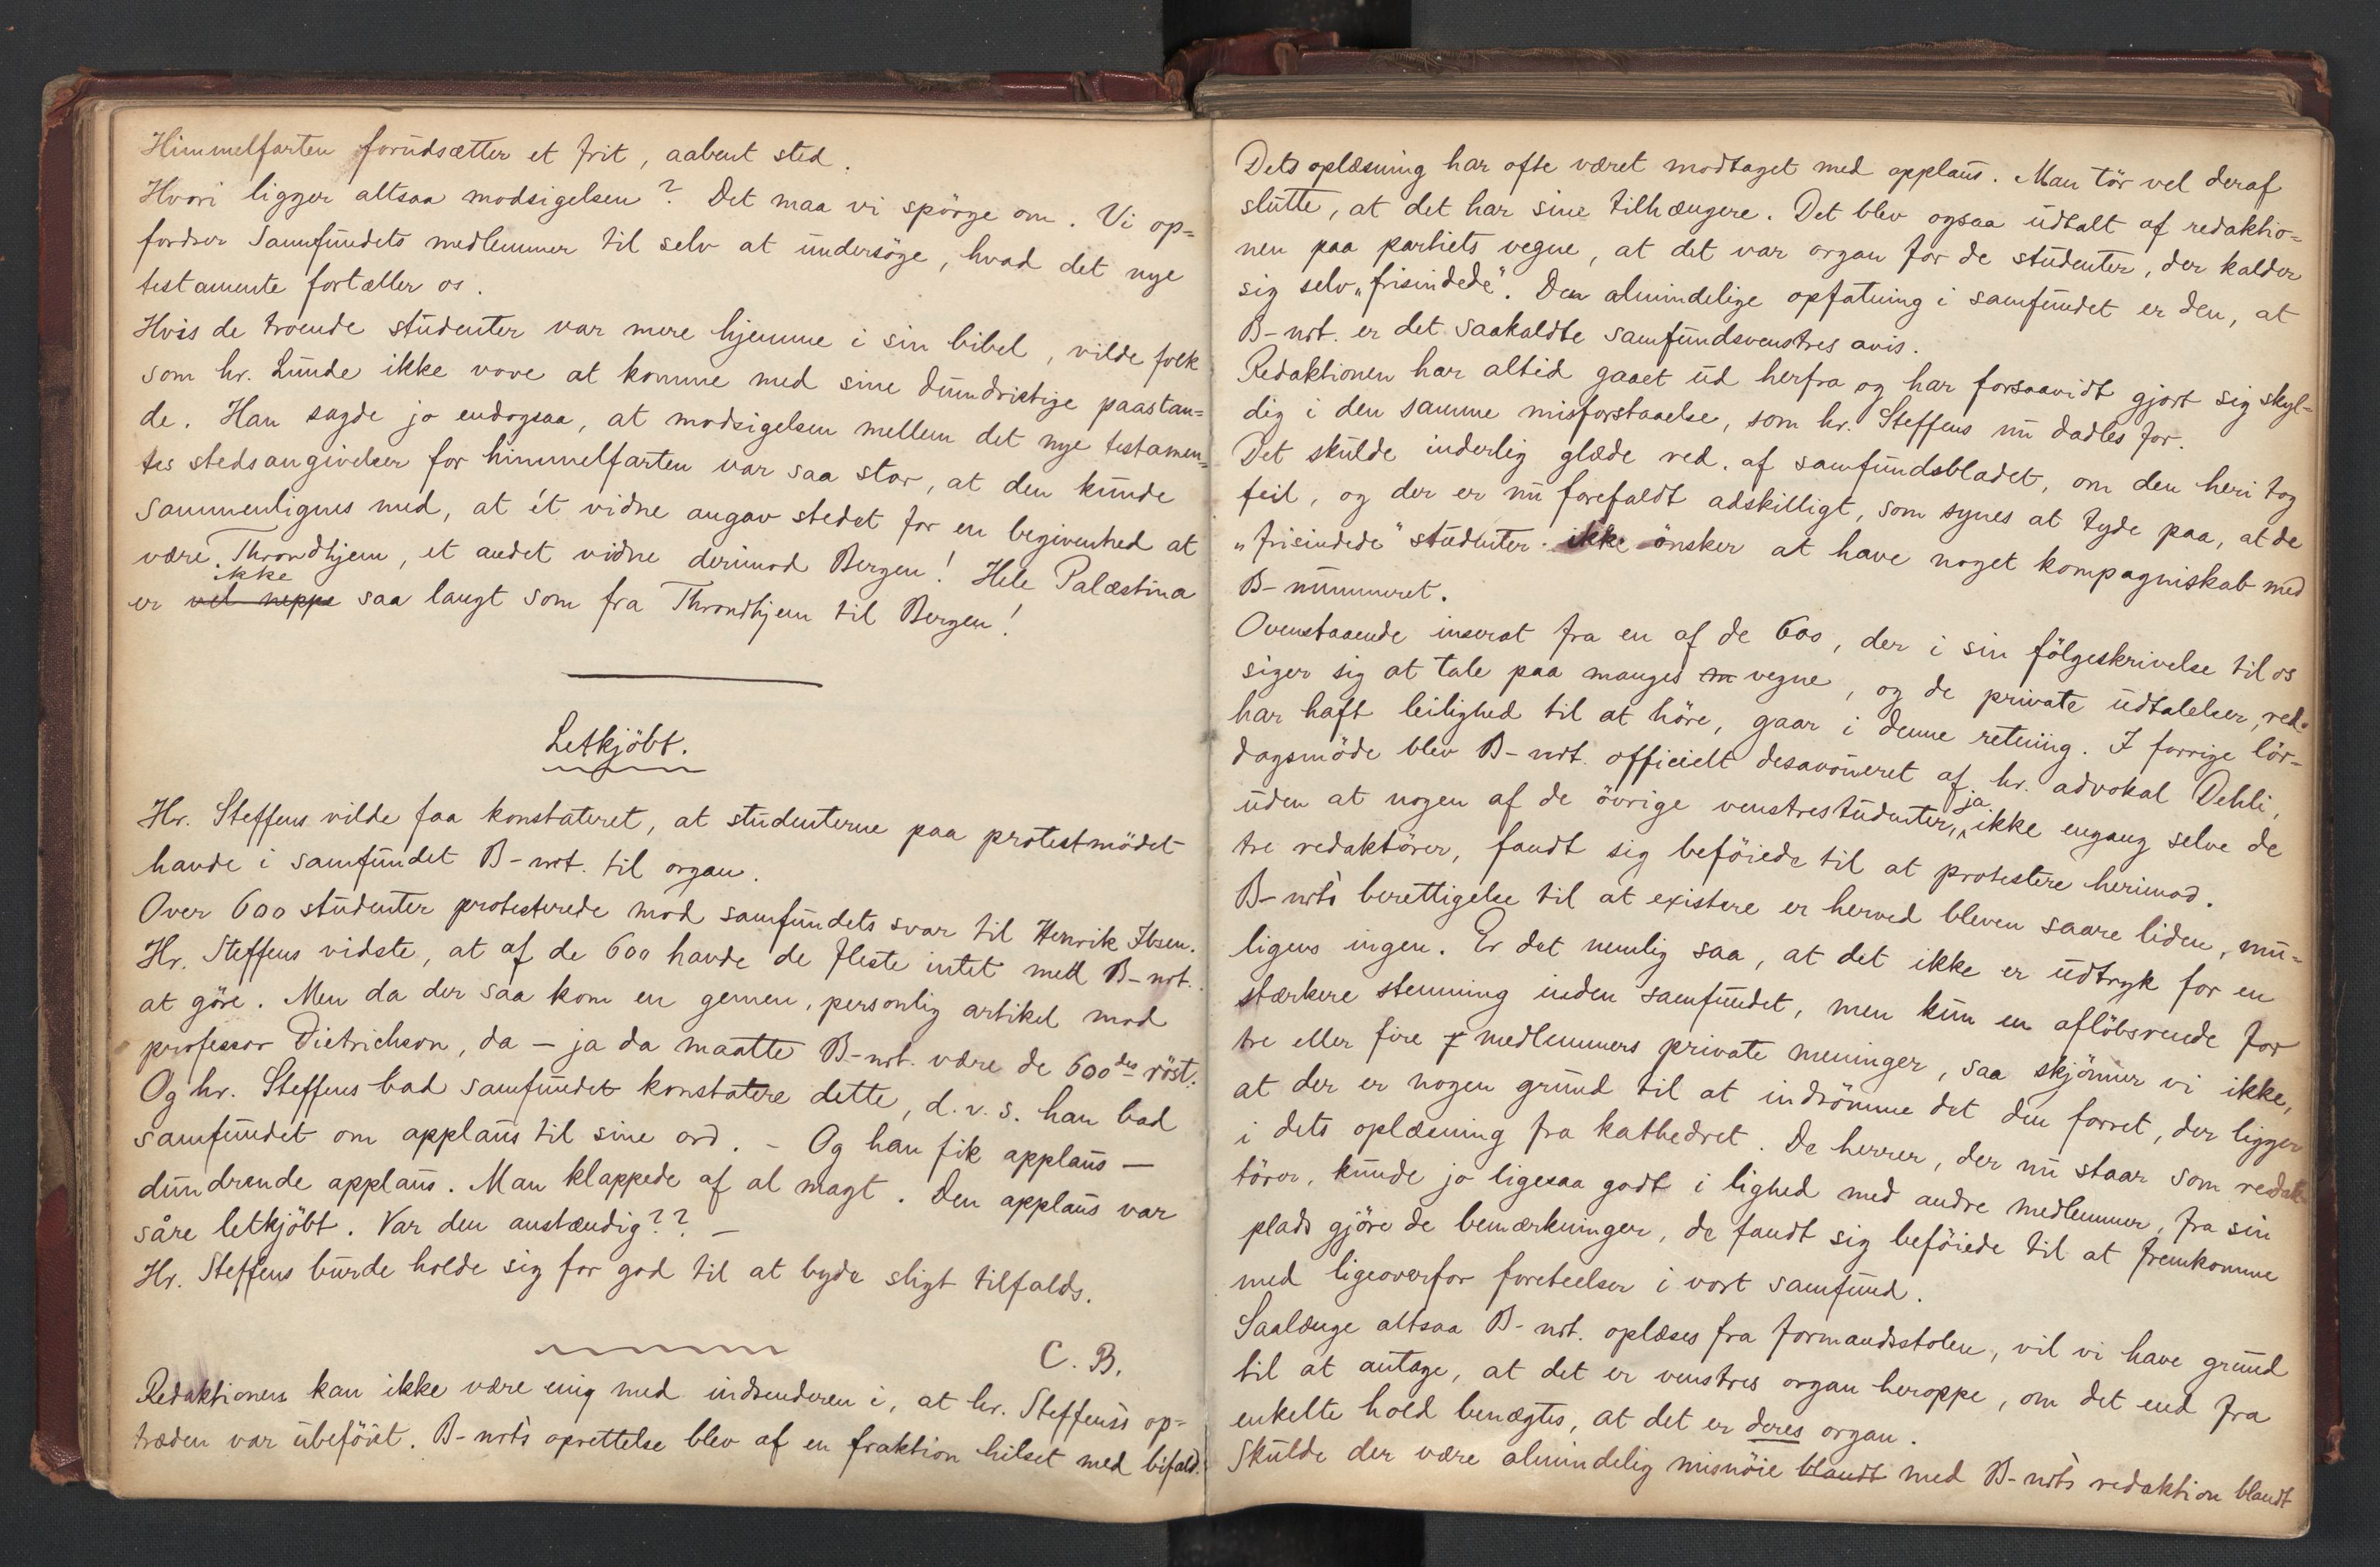 Himmelfarten forudsætter et frit, aabent sted.
Hvori ligger altsaa modsigelsen? Det maa vi spörge om. Vi op=
fordrer Samfundets medlemmer til selv at undersöge, hvad det nye
testamente fortæller os.
Hvis de troende studenter var mere hjemme i sin bibel, vilde folk
som hr. Lunde ikke vove at komme med sine dumdristige paastan=
de. Han sagde jo endogsaa, at modsigelsen mellem det nye testamen=
tes stedsangivelser for himmelfarten var saa stor, at den kunde
sammenlignes med, at ét vidne angav stedet for en begivenhed at
være Throndhjem, et andet vidne derimod Bergen! Hele Palæstina
ikke
er vel neppe saa langt som fra Throndhjem til Bergen!
Letkjöbt.
Hr. Steffens vilde faa konstateret, at studenterne paa protestmödet
havde i samfundet B-nrt. til organ.
Over 600 studenter protesterede mod samfundets svar til Henrik Ibsen.
Hr. Steffens vidste, at af de 600 havde de fleste intet med B-nrt.
at göre. Men da der saa kom en gemen, personlig artikel mod
professor Dietrichson, da — ja da maatte B-nrt. være de 600des röst.
Og hr. Steffens bad samfundet konstatere dette, d.v.s. han bad
samfundet om applaus til sine ord. – Og han fik applaus —
dundrende applaus. Man klappede af al magt. Den applaus var
såre letkjöbt. Var den anstændig?? —
Hr. Steffens burde holde sig for god til at byde sligt tilfals.
C. B.
Redaktionen kan ikke være enig med indsenderen i, at hr. Steffens's op=
træden var ubeföiet. B-nrt's oprettelse blev af en fraktion hilset med bifald.
Dets oplæsning har ofte været modtaget med applaus. Man tör vel deraf
slutte, at det har sine tilhængere. Det blev ogsaa udtalt af redaktio=
nen paa partiets vegne, at det var organ for de studenter, der kalder
sig selv „frisindede“. Den almindelige opfatning i samfundet er den, at
B-nrt. er det saakaldte samfundsvenstres avis.
Redaktionen har altid gaaet ud herfra og har forsaavidt gjort sig skyl=
dig i den samme misforstaaelse, som hr. Steffens nu dadles for.
Det skulde inderlig glæde red. af samfundsbladet, om den heri tog
feil, og der er nu forefaldt adskilligt, som synes at tyde paa, at de
„frisindede“ studenter ikke önsker at have noget kompagniskab med
B-nummeret.
Ovenstaaende inserat fra en af de 600, der i sin fölgeskrivelse til os
siger sig at tale paa manges vegne, og de private udtalelser, red.
har haft leilighed til at höre, gaar i denne retning. I forrige lör=
dagsmöde blev B-nrt. officielt desavoueret af hr. advokat Dehli,
uden at nogen af de övrige venstrestudenter, ja ikke engang selve de
tre redaktörer, fandt sig beföiede til at protestere herimod.
B-nrt's berettigelse til at existere er herved bleven saare liden, mu=
ligens ingen. Er det nemlig saa, at det ikke er udtryk for en
stærkere stemning inden samfundet, men kun en aflöbsrende for
tre eller fire medlemmers private meninger, saa skjönner vi ikke,
at der er nogen grund til at indrömme det den forret, der ligger
i dets oplæsning fra kathedret. De herrer, der nu staar som redak
törer, kunde jo ligesaa godt i lighed med andre medlemmer, fra sin
plads gjöre de bemærkninger, de fandt sig beföiede til at fremkomme
med ligeoverfor foreteelser i vort samfund.
Saalænge altsaa B-nrt. oplæses fra formandsstolen, vil vi have grund
til at antage, at det er venstres organ heroppe, om det end fra
enkelte hold benægtes, at det er deres organ.
Skulde der være almindelig misnöie blandt med B-nrt's redaktion blandt